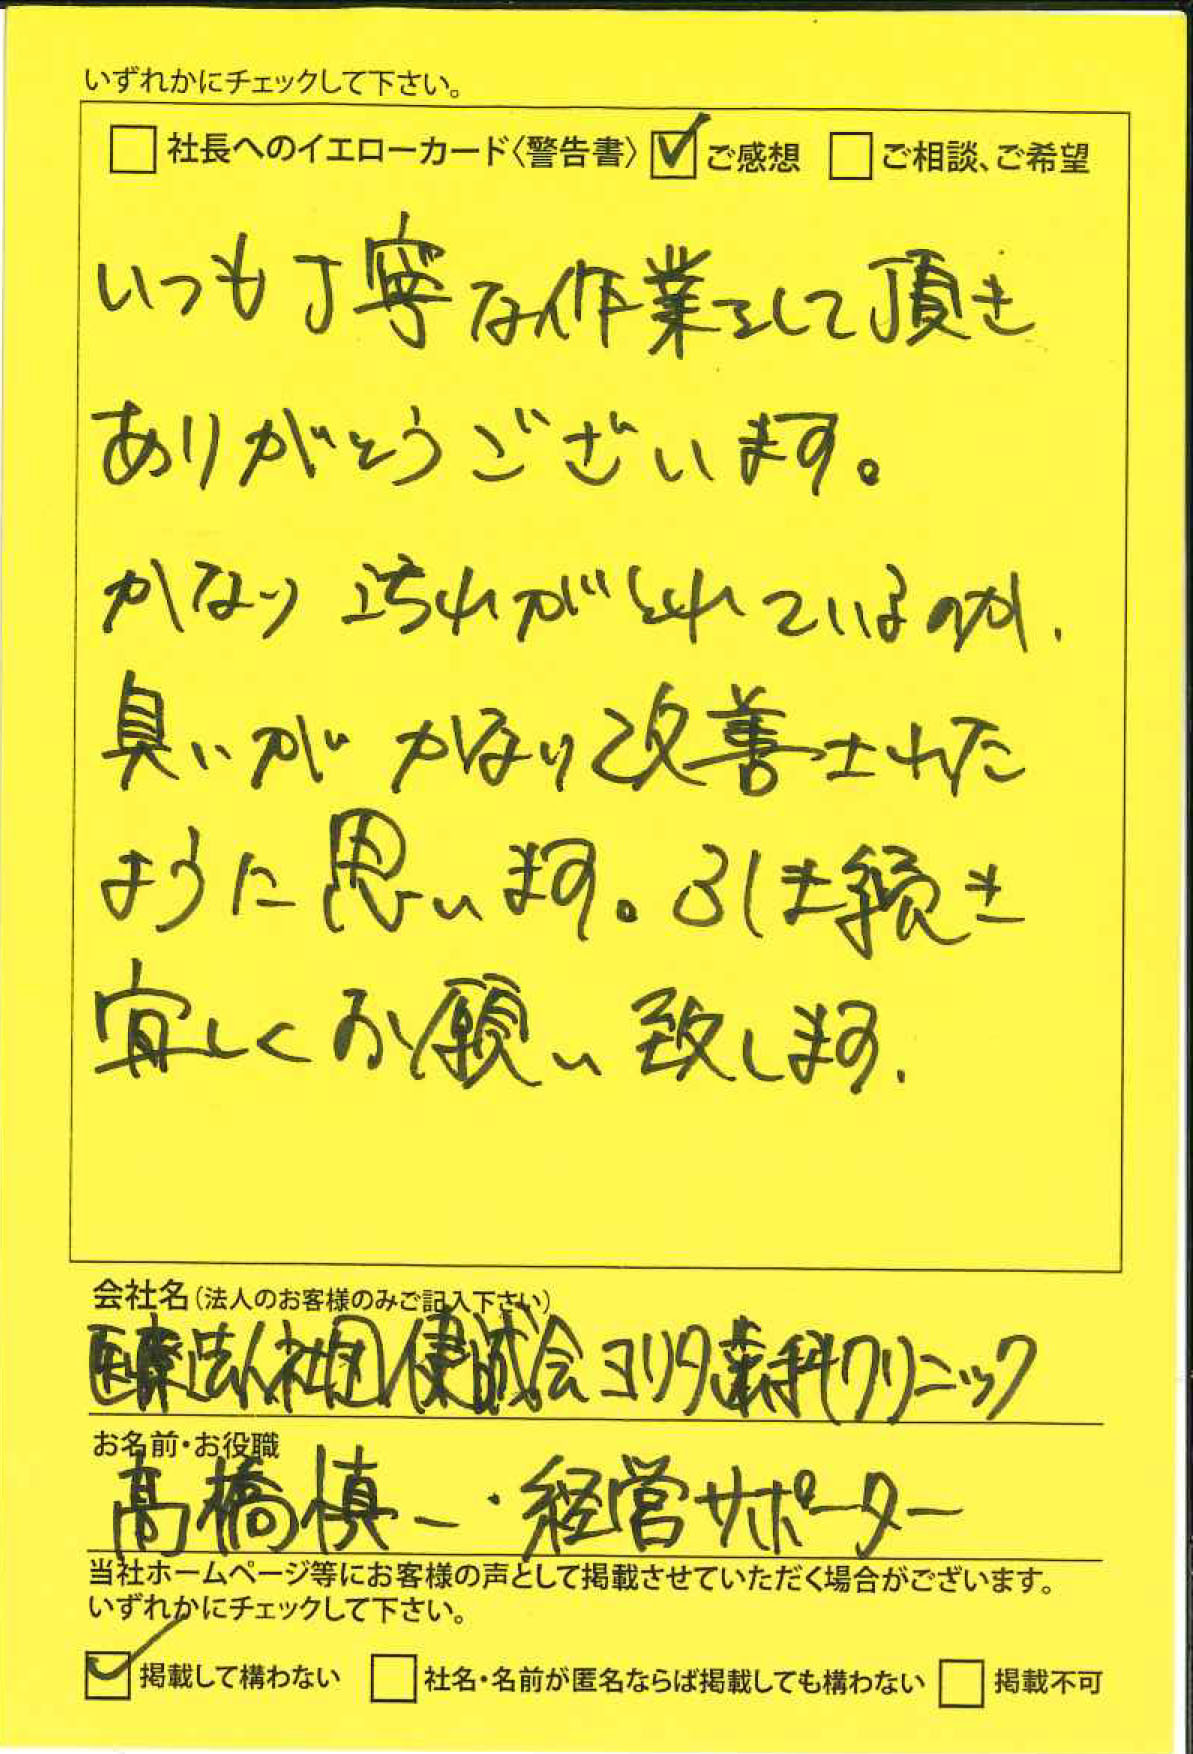 いずれかにチェックして下さい。
□ 社長へのイエローカード〈警告書〉 ☑ ご感想 □ ご相談、ご希望
いつも丁寧な作業をして頂き
ありがとうございます。
かなり汚れがとれているのか、
臭いがかなり改善された
ように思います。引き続き
宜しくお願い致します。
会社名(法人のお客様のみご記入下さい)
医療法人社団健誠会ヨリタ歯科クリニック
お名前・お役職
髙橋慎一・経営サポーター
当社ホームページ等にお客様の声として掲載させていただく場合がございます。
いずれかにチェックして下さい。
☑ 掲載して構わない □ 社名・名前が匿名ならば掲載しても構わない □ 掲載不可